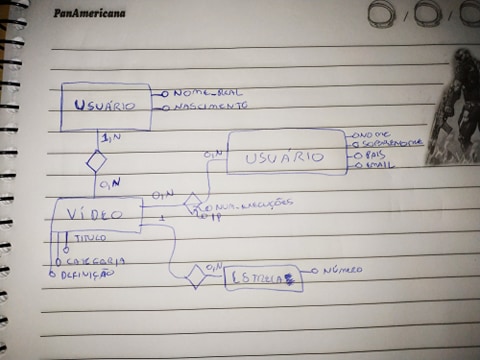 PanAmericana
USUÁRIO
NOME_REAL
NASCIMENTO
1,N
0,N
USUÁRIO
0,N
NOME
SOBRENOME
PAÍS
EMAIL
VÍDEO
0,N
NUM_EXECUÇÕES
IP
1
TITULO
CATEGORIA
DEFINIÇÃO
0,N
NÚMERO